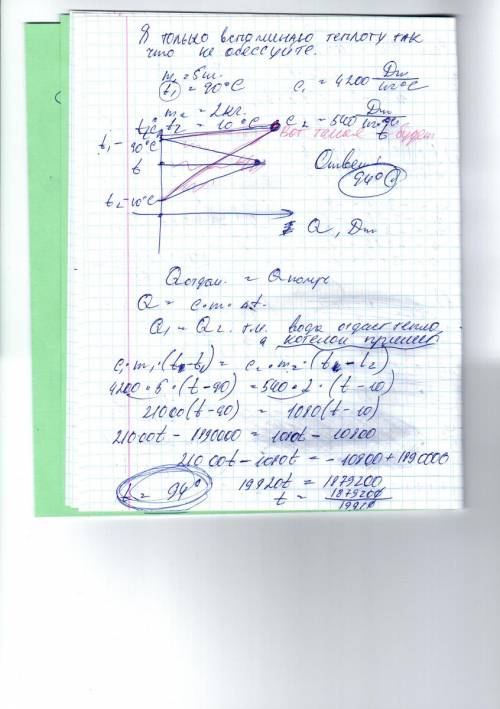 Я только вспоминаю теплоту так
что не обессудте.
m₁ = 5кг. c₁ = 4200 Дж/кг°C
t₁ = 90°C
m₂ = 2кг. c₂ = 540 Дж/кг°C
t₂ = 10°C Вот такая t будет
t°C
t₁ - 90°C
t Ответ:
94°C
t₂ - 10°C
Q, Дж
Qотдан. = Qполуч
Q = c·m·Δt.
Q₁ = Q₂. т.к. вода отдаёт тепло,
а котелок принимает
c₁·m₁·(t-t₁) = c₂·m₂·(t-t₂)
4200·5·(t-90) = 540·2·(t-10)
21000(t-90) = 1080(t-10)
21000t - 1890000 = 1080t - 10800
21000t - 1080t = -10800 + 1890000
t = 94° 19920t = 1879200
t = 1879200/19920